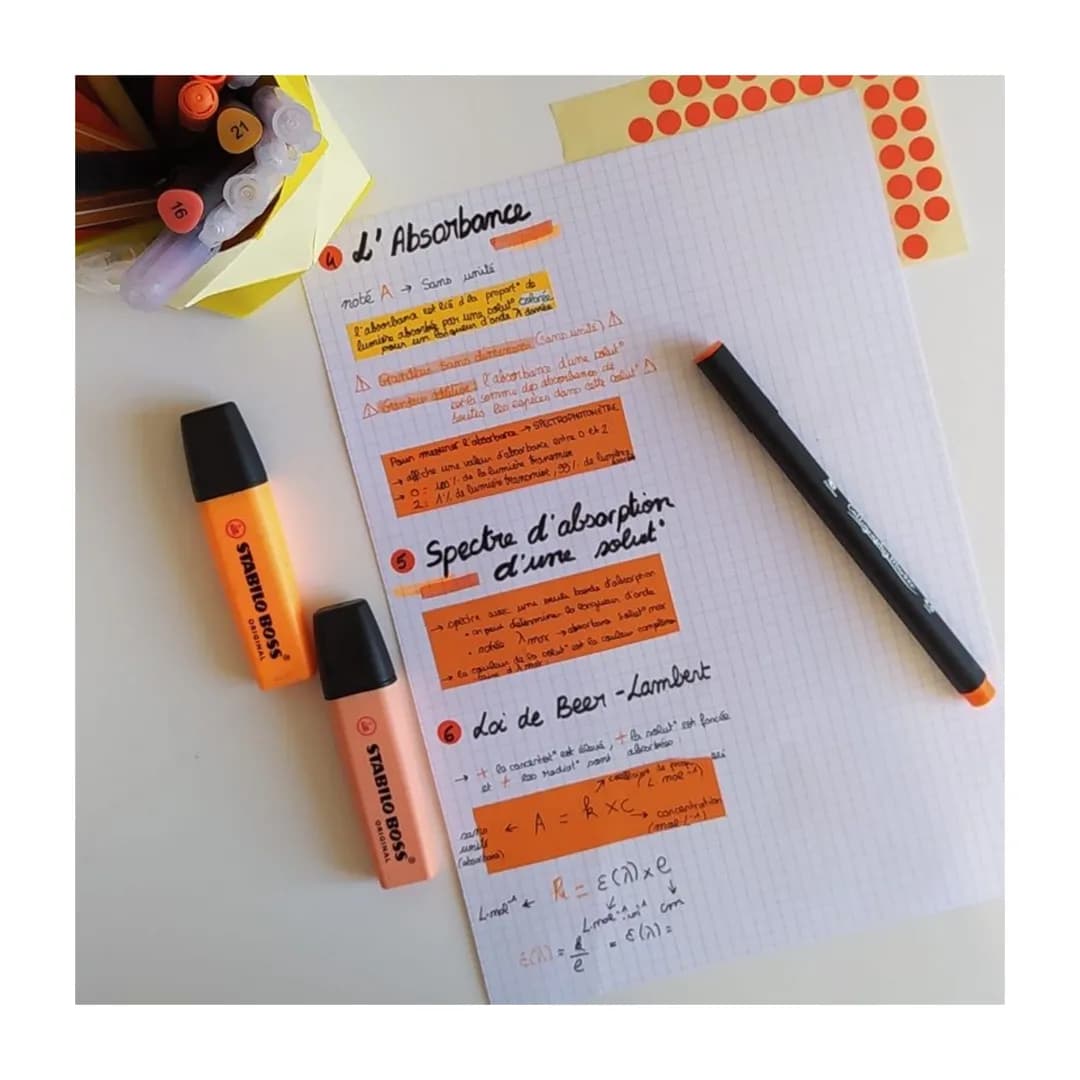 21
16
4 L'Absorbance
noté A → Sans unité
l'absorbance est lié à la proport° de
lumière absorbée par une solut° colorée
pour un longueur d'onde λ donnée
⚠ Grandeur sans dimension (sans unité) ⚠
⚠ Grandeur additive : l'absorbance d'une solut°
est la somme des absorbances de
toutes les espèces dans cette solut° ⚠
Pour mesurer l'absorbance → SPECTROPHOTOMÈTRE
→ affiche une valeur d'absorbance entre 0 et 2
→ 0 : 100% de la lumière transmise
2 : 1% de lumière transmise, 99% de lumière
5 Spectre d'absorption
d'une solut°
→ spectre avec une seule bande d'absorption
• on peut déterminer la longueur d'onde
• notée λ max → absorbans solut° max
→ la couleur de la solut° est la couleur complémen
taire d λ max
6 Loi de Beer-Lambert
→ + la concentrat° est élevé, + la solut° est foncée
et + les radiat° sont absorbées
coefficient de prop
(L mol⁻¹)
sans unité (absorbans) ← A = k × C → concentration
(mol.L⁻¹)
L.mol⁻¹ ← k = ε(λ) × e
L.mol⁻¹.cm⁻¹ cm
ε(λ) = k/e = ε(λ) =
STABILO BOSS
ORIGINAL
STABILO BOSS
ORIGINAL